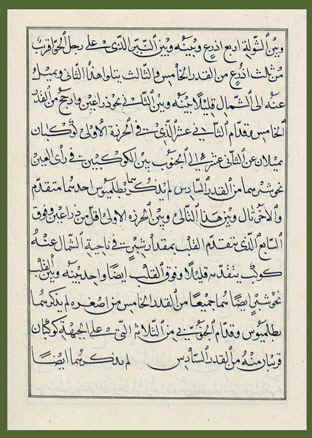 وبين الشولة اربع اذرع وبينه وبين النير الذى على رجل الحوا قريب
من ثلث اذرع من القدر الخامس والثالث يتلو هذا الثانى ويميل
عنه الى الشمال قليلا بينه وبين الثانى نحو ذراعين وارجح من القدر
الخامس وقدام التاسع عشر الذى فى الحرزة الاولى كوكبان
يميلان عن الثانى عشر الى الجنوب بين الكوكبين فى راى العين
نحو شبر هما من القدر السادس لم يذكرهما بطلميوس احدهما متقدم
والاخر تال وبين هذا التالى وبين الحرزه الاولى اقل من ذراعين وفوق
السابع الذى يتقدم القلب بمقدار شبرين فى ناحية الشمال عنه
كوكب يتقدمه قليلا وفوق القلب ايضا واحد بينه وبين القلب
نحو شبر ايضا هما جميعا من القدر الخامس من اصغره لم يذكرهما
بطلميوس وقدام الجنوبى من الثلاثة التى على الجبهة كوكبان
قريبان منه من القدر السادس لم يذكرهما ايضا